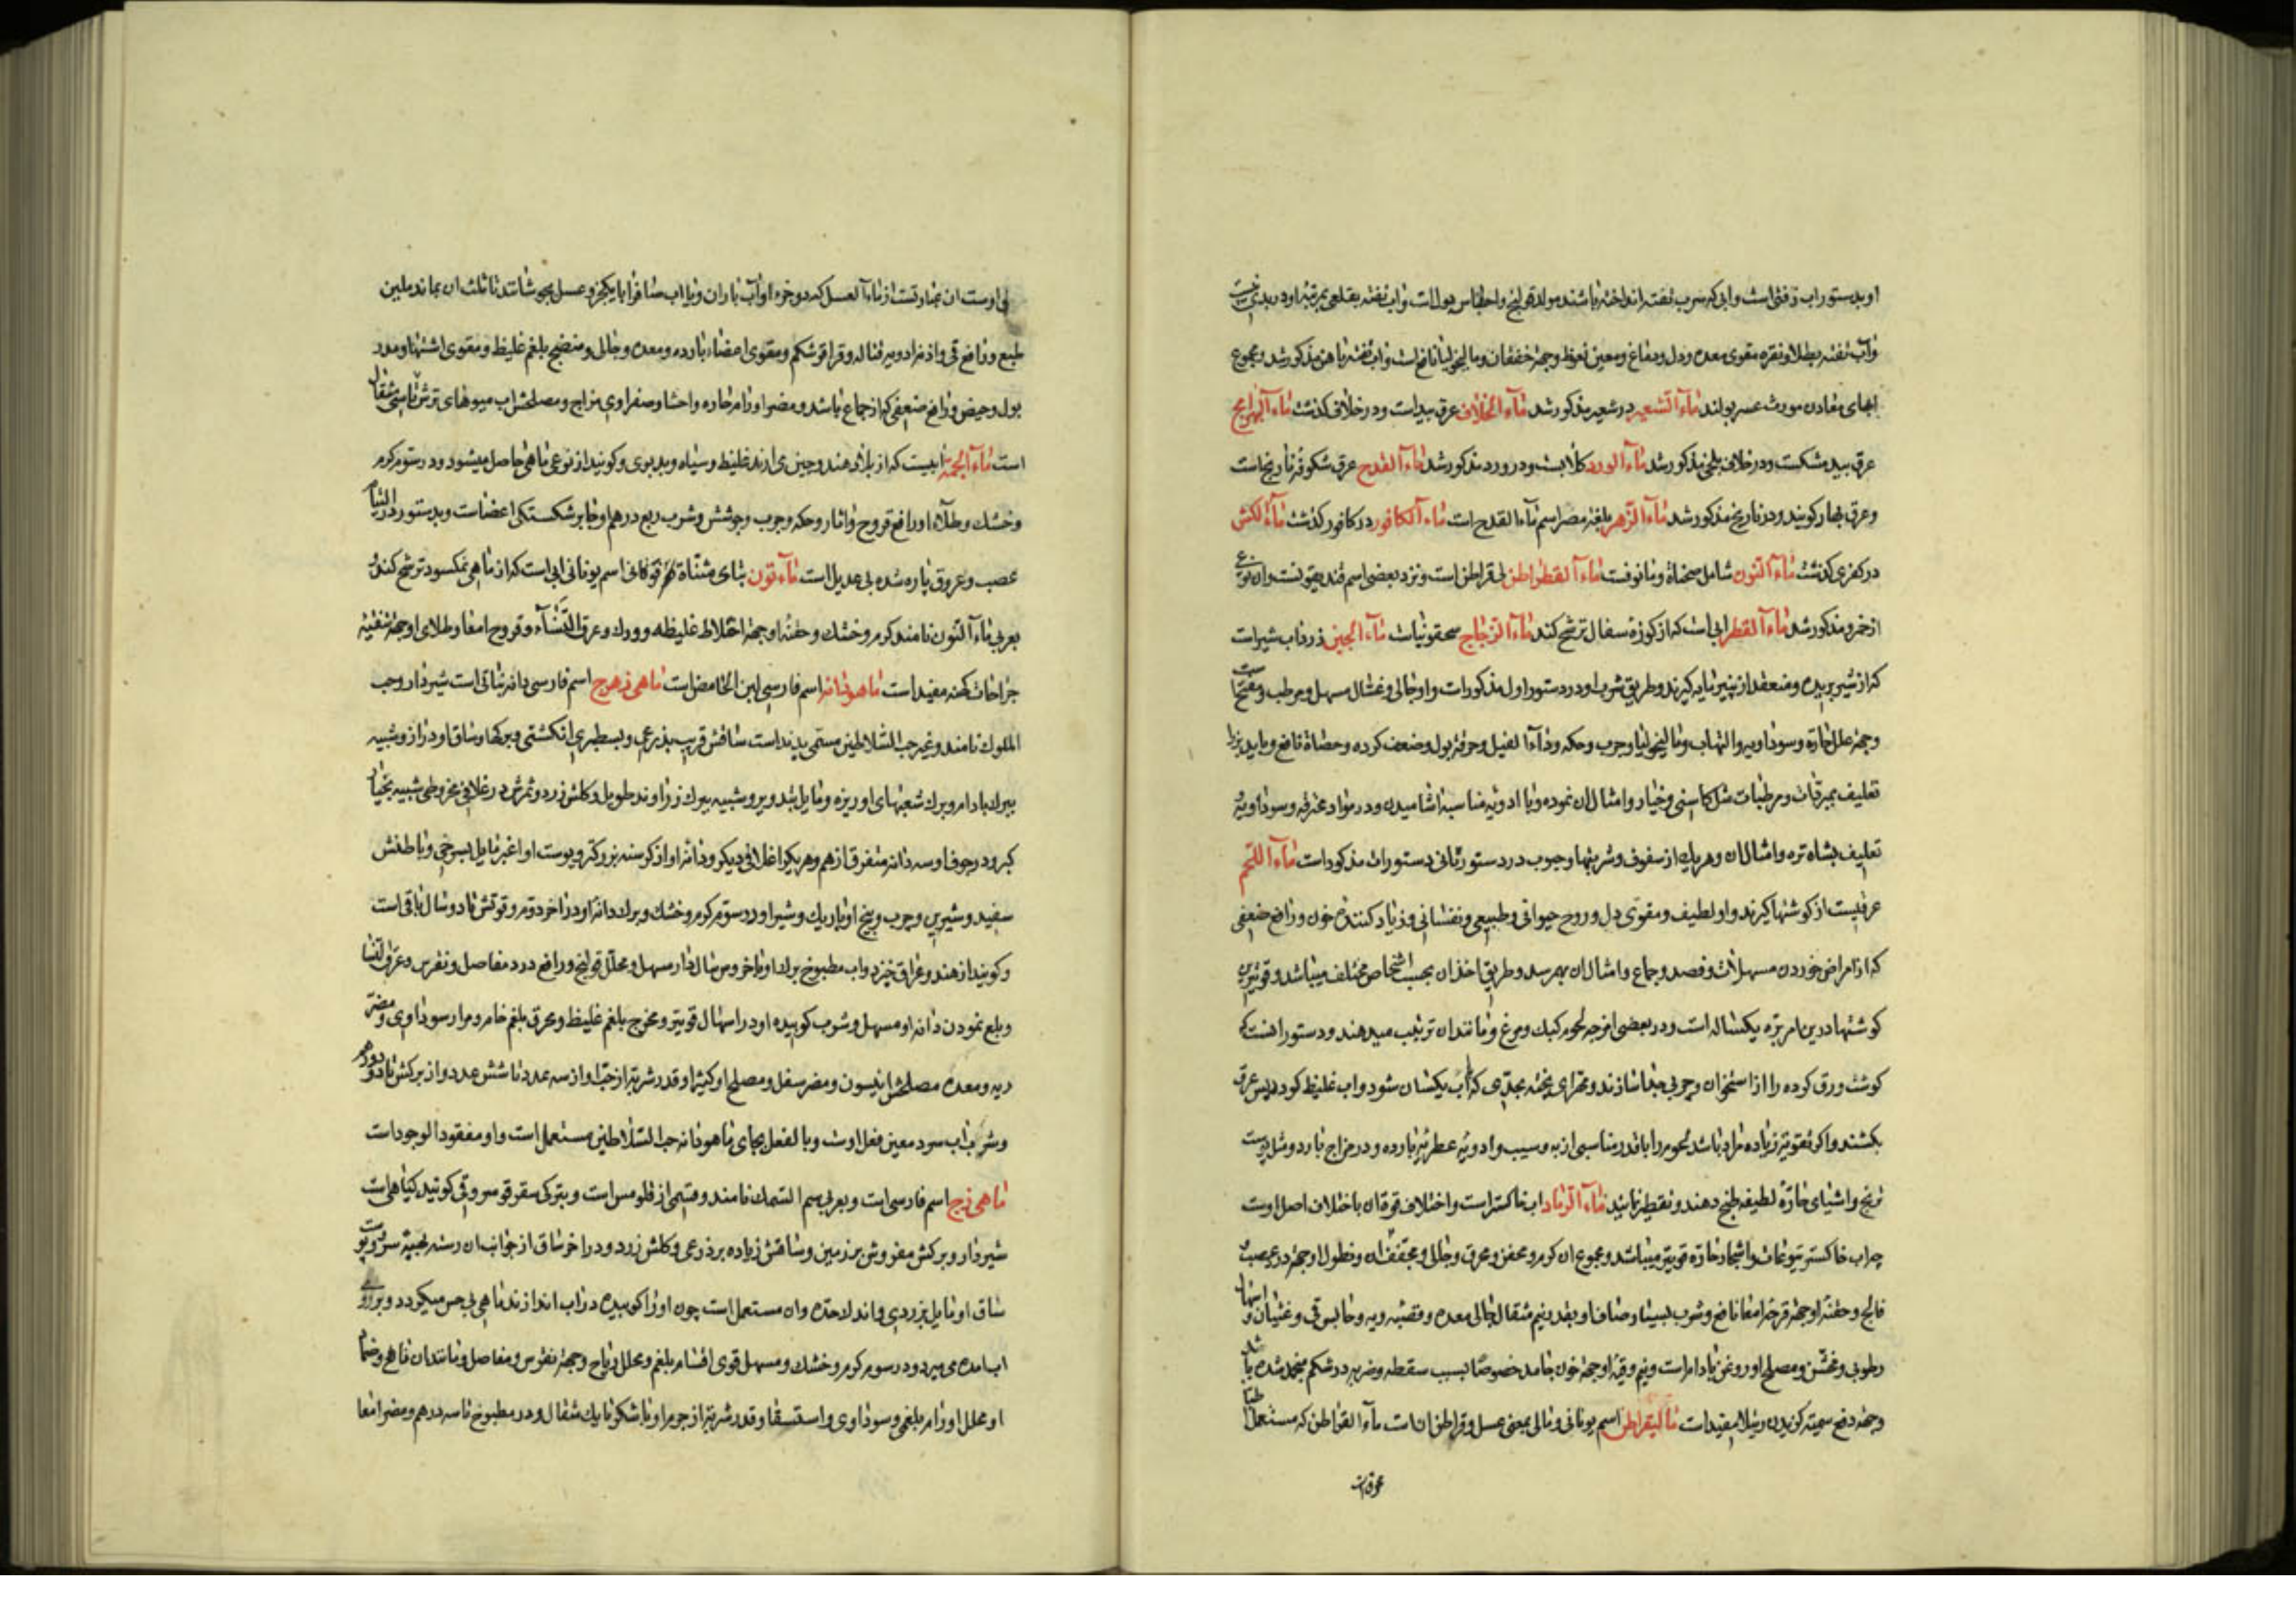 او بدستور اب زفتی است و ابی که سرب تفته انداخته باشند مولد قولنج و احتباس بول است و اب تفته بقلعی بمرتبه او در بدی نیست
و آب تفته بطلا و نقره مقوی معده و دل و دماغ و معین نعوظ و جهة خفقان و مالیخولیا نافع است و اب تفته باهن مذکور شد و مجموع
ابهای معادن مورث عسر بولند ماء الشعیر در شعیر مذکور شد ماء الخلاف عرق بید است و در خلاف کذشت ماء البهرامج
عرق بید مشکست و در خلاف بلخی مذکور شد ماء الورد کلابست و در ورد مذکور شد ماء القداح عرق شکوفه نارنج است
و عرق بهار کویند و در نارنج مذکور شد ماء الزهر بلغة مصر اسم ماء القدح است ماء الکافور در کافور کذشت ماء الکش
در کفری کذشت ماء النون شامل صحناة و ماء نوفست ماء القطراطن لی قراطن است و نزد بعضی اسم فندیقونست و ان نوعی
از خمر و مذکور شد ماء القطر ابی است که از کوزه سفال ترشح کند ماء الزجاج سحقونیاست ماء الجبن زرداب شیر است
که از شیر بریده و منعقد از پنیر مایه کیرند و طریق شرب او در دستور اول مذکور است و او جالی و غسال مسهل و مرطب و مفتح است
و جهة علل حاره و سوداویه و التهاب و مالیخولیا و جرب و حکه و داء الفیل و حرقة بول و ضعف کرده و حصاة نافع و باید بزرا
تعلیف بمبردات و مرطبات مثل کاسنی و خیار و امثال ان نموده و با ادویه مناسبه اشامیدن و در مواد محترقه و سوداویه
تعلیف بشاه تره و امثال ان و هر یک از سفوف و شربتها و حبوب در دستور ثانی دستورات مذکور است ماء اللحم
عرقیست از کوشتها کیرند و او لطیف و مقوی دل و روح حیوانی و طبیعی و نفسانی و زیاد کننده خون و رافع ضعفی
که از امراض خوردن مسهلات و فصد و جماع و امثال ان بهم رسد و طریق اخذ ان بحسب اشخاص مختلف میباشد و قویترین
کوشتها در این امر بره یکساله است و در بعضی امزجه لحوم کبک و مرغ و مانند ان ترتیب میدهند و دستور انست که
کوشت ورق کرده را از استخوان و چربی جدا سازند و مهرای پخته بحدی که اب یکسان شود و اب غلیظ کردد پس عرق
بکشند و اکر تقویت زیاده مراد باشد لحوم را با قدر مناسبی از به و سیب و ادویه عطریه بارده و در مزاج بارد و مثل پوست
ترنج و اشیای حاره لطیفه طبخ دهند و تقطیر نمایند ماء الرماد اب خاکستر است و اختلاف قوة ان باختلاف اصل اوست
چه اب خاکستر یتوعات و اشجار حاره قویتر میباشد و مجموع ان کرم و معفن و محرق و جالی و مجفف اند و نطول او جهة درد عصب و
فالج و حقنه او جهة قرحه امعا نافع و شرب بسیار صاف او بقدر نیم مثقال جالی معده و قصبه ریه و حابس قی و غثیان و اسهال
رطوبی و مغثی و مصلح او روغن بادام است و نیم وقیه او جهة خون جامد خصوصا بسبب سقطه و ضربه در شکم منجمد شده باشد
و جهة دفع سمیة کزیدن رتیلا مفید است مالیقراطن اسم یونانی و مالی بمعنی عسل و قراطن ان است ماء القراطن که مستعمل اطبا
لی اوست ان عبارتست از ماء العسل که دو جزو او آب باران و یا اب صاف را با یکجزو عسل بجوشانند تا ثلث ان بماند ملین
طبع و رافع قی و اذیت ادویه قتاله و قراقر شکم و مقوی اعضاء بارده و معده و جالی و منضج بلغم غلیظ و مقوی اشتها و مدر
بول و حیض و رافع ضعفی که از جماع باشد و مضر اورام حاره و احشا و صفراوی مزاج و مصلحش اب میوهای ترش تا سی مثقال
است ماء الجمه ابیست که از بلاد هند و چین می ارند غلیظ و سیاه و بدبوی و کویند از نوعی ماهی حاصل میشود و در سوم کرم
و خشک و طلاء او رافع قروح و اثار و حکه و جرب و جوشش و شرب ربع درهم او جابر شکستکی اعضاست و بدستور در التیام
عصب و عروق پاره شده بی عدیل است ماء نون بتای مثناة فوقانی اسم یونانی ابی است که از ماهی نمکسود ترشح کند و
بعربی ماء النون نامند کرم و خشک و حقنه او جهة اخلاط غلیظه و ورک و عرق النساء و قروح امعا و طلای او جهة تنقیه
جراحات کهنه مفید است ماهودانه اسم فارسی لبن الحامض است ماهی زهرج اسم فارسی دانه نباتی است شیردار و حب
الملوک نامند و غیر حب السلاطین مسمی بدند است ساقش قریب بذرعی و بسطبری انکشتی و برکها و ساق او دراز و شبیه
ببرک بادام و برک شعبهای او ریزه و مایل بتدویر و شبیه ببرک زراوند طویل و کلش زرد و ثمرش در غلافی مخروطی شبیه بخیار
کبر و در جوف او سه دانه متفرق از هم و هر یک را غلافی دیکر و دانه او از کرسنه بزرکتر و پوست او اغبر مایل بسرخی و باطنش
سفید و شیرین و چرب و بیخ او باریک و شیر او در سوم کرم و خشک و برک و دانه او در اخر دوم و قوتش تا دو سال باقی است
و کویند از هند و عراق خیزد و اب مطبوخ برک او با خروس سال دار مسهل و محلل قولنج و رافع درد مفاصل و نقرس و عرق النسا
و بلع نمودن دانه او مسهل و شرب کوبیده او در اسهال قویتر و مخرج بلغم غلیظ و محرق بلغم خام و مرار سوداوی و مضر
ریه و معده مصلحش انیسون و مضر سفل و مصلح او کتیرا و قدر شربت از حب او از سه عدد تا شش عدد و از برکش تا دو درم
و شرب اب سرد معین فعل اوست و بالفعل بجای ماهودانه حب السلاطین مستعمل است و او مفقود الوجود است
ماهی زج اسم فارسی است و بعربی سم السمک نامند و قسمی از فلومس است و بترکی سقرقوسروقی کویند کیاهی است
شیردار و برکش مفروش بر زمین و ساقش زیاده بر ذرعی و کلش زرد و در اخر ساق از جوانب ان رسته بهیئة سرو و پوست
ساق او مایل بزردی و اندک حده و ان مستعمل است چون او را کوبیده در اب اندازند ماهی بی حس میکردد و بر روی
اب امده می میرد و در سوم کرم و خشک و مسهل قوی اقسام بلغم و محلل ریاح و جهة نقرس و مفاصل و مانند ان نافع و ضماد
او محلل اورام بلغمی و سوداوی و استسقا و قدر شربت از جرم او با شکر تا یک مثقال و در مطبوخ تا سه درهم و مضر امعا